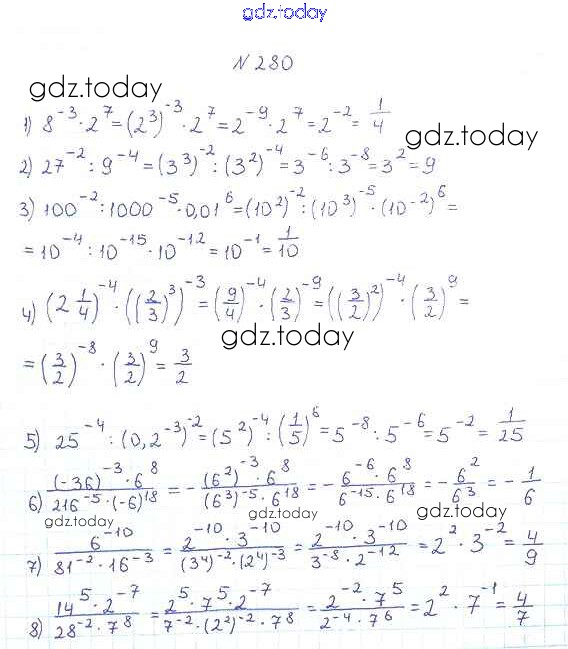 gdz.today
N 280
gdz.today
1) 8^{-3} · 2^7 = (2^3)^{-3} · 2^7 = 2^{-9} · 2^7 = 2^{-2} = 1/4
gdz.today
2) 27^{-2} : 9^{-4} = (3^3)^{-2} : (3^2)^{-4} = 3^{-6} : 3^{-8} = 3^2 = 9
3) 100^{-2} : 1000^{-5} · 0,01^6 = (10^2)^{-2} : (10^3)^{-5} · (10^{-2})^6 =
= 10^{-4} : 10^{-15} · 10^{-12} = 10^{-1} = 1/10
4) (2 1/4)^{-4} · ((2/3)^3)^{-3} = (9/4)^{-4} · (2/3)^{-9} = ((3/2)^2)^{-4} · (3/2)^9 =
gdz.today
= (3/2)^{-8} · (3/2)^9 = 3/2
5) 25^{-4} : (0,2^{-3})^{-2} = (5^2)^{-4} : (1/5)^6 = 5^{-8} : 5^{-6} = 5^{-2} = 1/25
6) (-36)^{-3} · 6^8 / 216^{-5} · (-6)^{18} = - (6^2)^{-3} · 6^8 / (6^3)^{-5} · 6^{18} = - 6^{-6} · 6^8 / 6^{-15} · 6^{18} = - 6^2 / 6^3 = - 1/6
gdz.today
gdz.today
7) 6^{-10} / 81^{-2} · 16^{-3} = 2^{-10} · 3^{-10} / (3^4)^{-2} · (2^4)^{-3} = 2^{-10} · 3^{-10} / 3^{-8} · 2^{-12} = 2^2 · 3^{-2} = 4/9
8) 14^5 · 2^{-7} / 28^{-2} · 7^8 = 2^5 · 7^5 · 2^{-7} / 7^{-2} · (2^2)^{-2} · 7^8 = 2^{-2} · 7^5 / 2^{-4} · 7^6 = 2^2 · 7^{-1} = 4/7